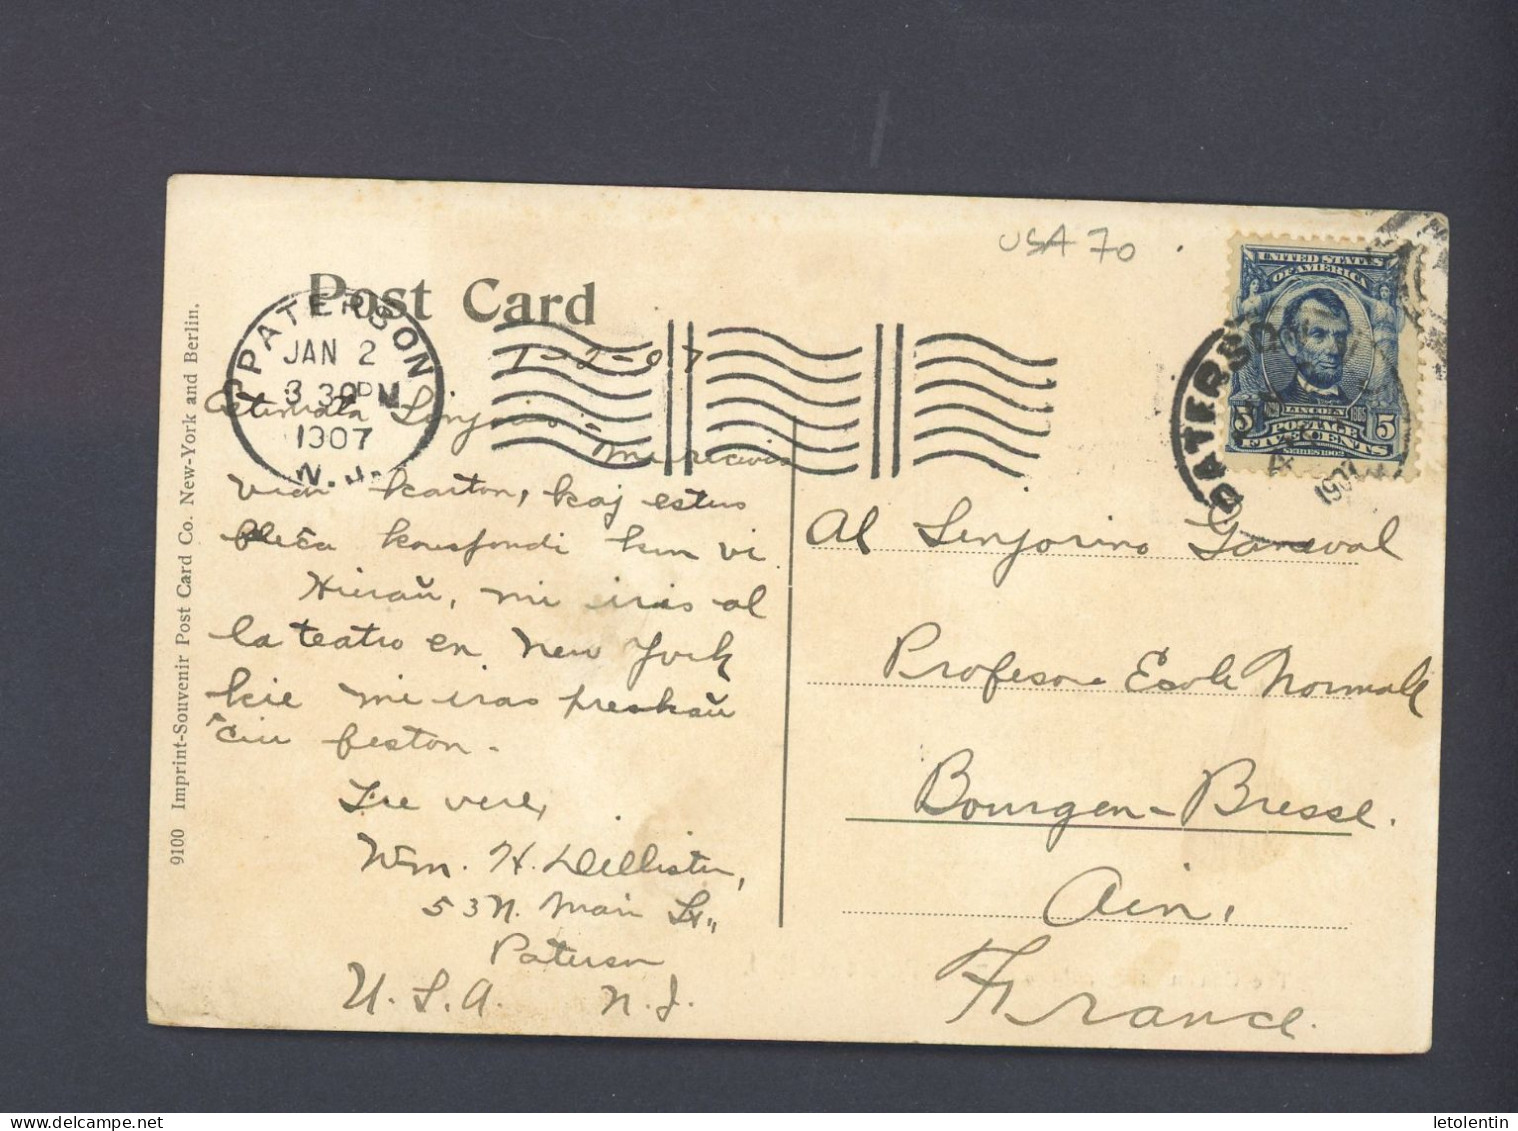 USA 70
Post Card
PATERSON
JAN 2
3 30 PM
1907
N.J.
1-2-07
UNITED STATES
OF AMERICA
5 LINCOLN 5
POSTAGE
FIVE CENTS
SERIES 1902
PATERSON
1907
Estimata Sinjorino:-
Mi recivis
vian karton, kaj estus
pleĉa korespondi kun vi
Hieraŭ, mi iris al
la teatro en New York
kie mi iras preskaŭ
ĉiu feston.
Tre vere,
Wm. H.
53 N. Main St.,
Paterson
U.S.A. N.J.
Al Sinjorino Ganeval
Profesore Ecole Normale
Bourgen-Bresse.
Ain,
France.
9100 Imprint-Souvenir Post Card Co. New-York and Berlin.
letolentin